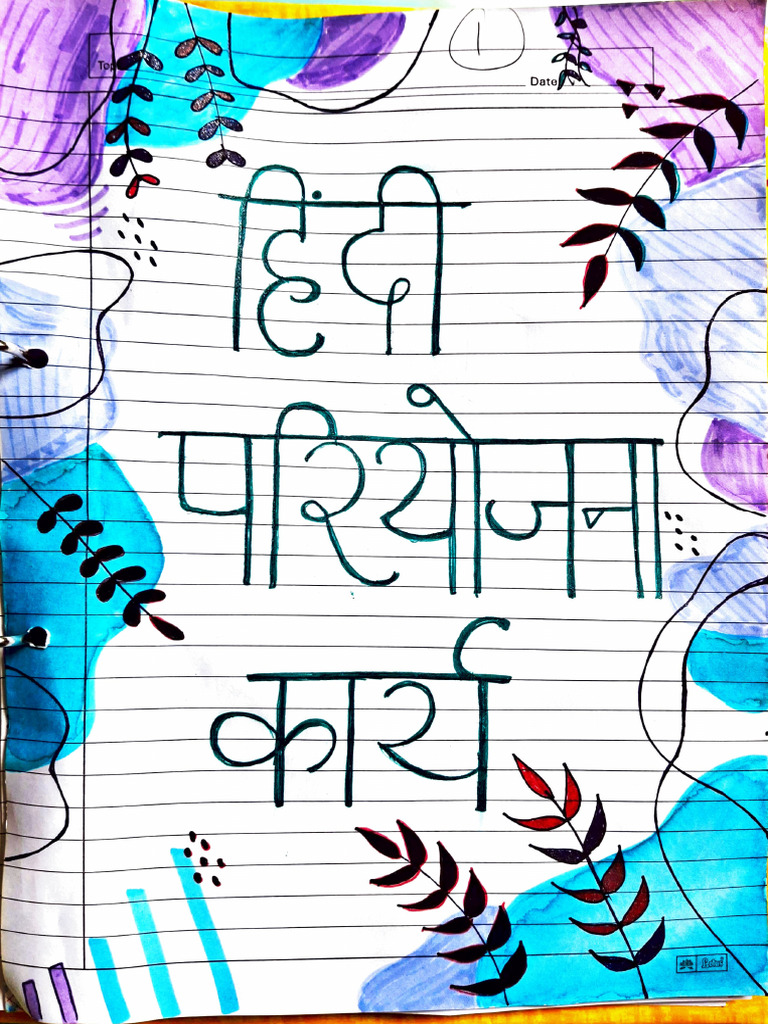 1
Date
हिंदी
परियोजना
कार्य